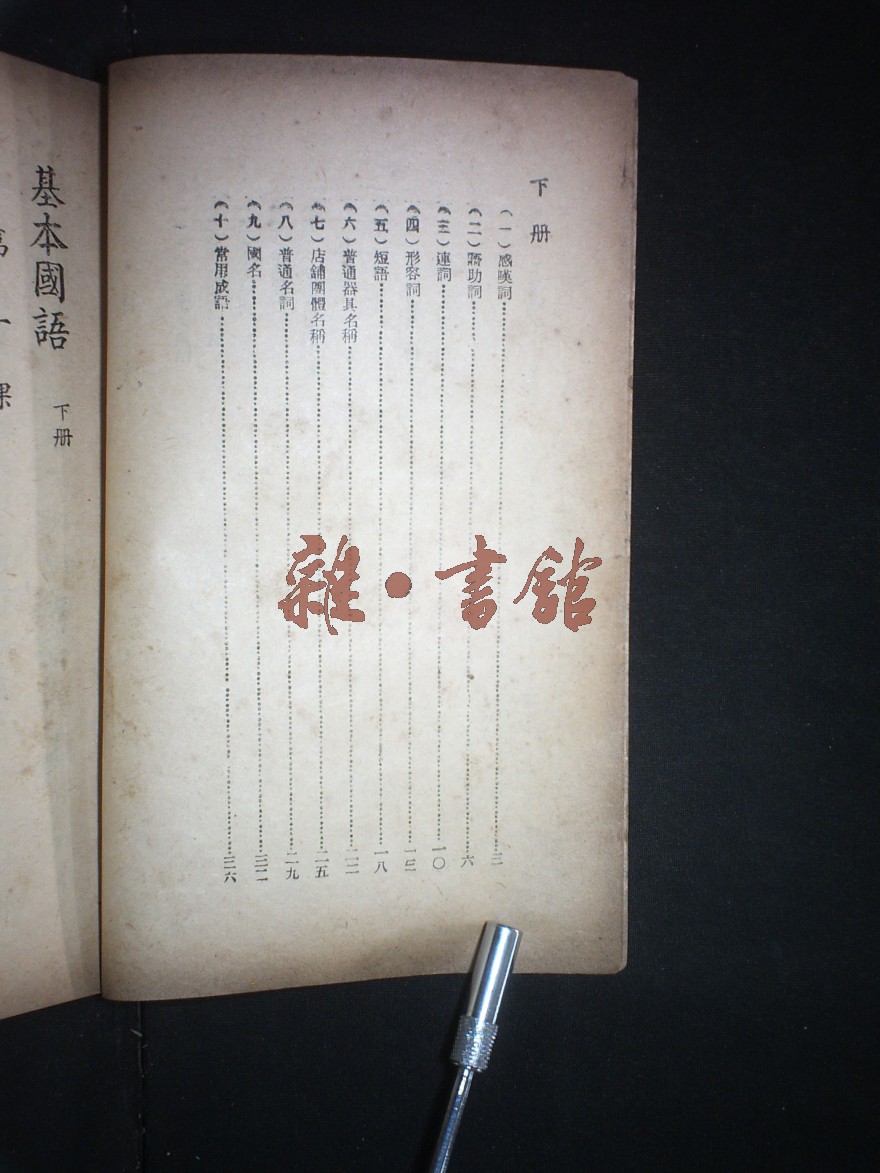 下册
（一）感嘆詞……三
（二）語助詞……六
（三）連詞……一〇
（四）形容詞……一三
（五）短語……一八
（六）普通器具名稱……二二
（七）店舖團體名稱……二五
（八）普通名詞……二九
（九）國名……三二
（十）常用成語……三六
基本國語 下册
一課
雜·書館